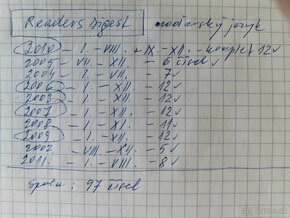 Readers Digest maďarský jazyk
2010 - I. - VIII. + IX. - XII. - komplet 12 ✓
2005 - VII. - XII. - 6 čísel ✓
2004 - I. - VII. - 7 ✓
2006 - I. - XII. - 12 ✓
2003 - I. - XII. - 12 ✓
2007 - I. - XII. - 12 ✓
2008 - I. - XII. - 11 ✓
2009 - I. - XII. - 12 ✓
2002 - VIII. - XII. - 5 ✓
2011. - I. - VIII. - 8 ✓
Spolu: 97 čísel